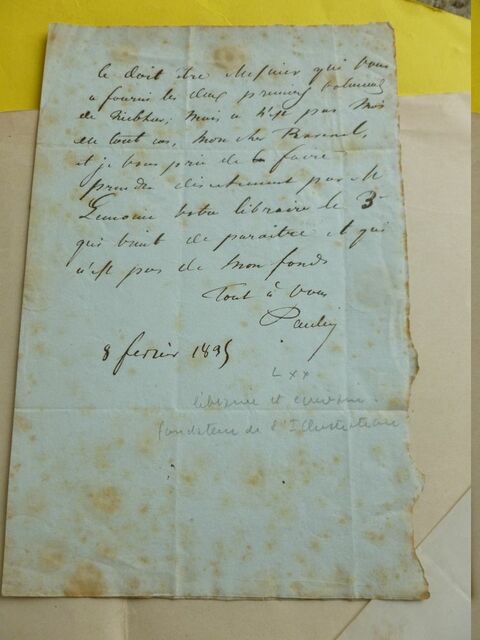 Ce doit être Mesnier qui vous
a fourni les deux premiers volumes
de Niebhur; mais ce n'est pas moi
en tout cas, mon cher Ravenel,
et je vous prie de le faire
prendre directement par M
Lemoine votre libraire le 3e
qui vient de paraitre et qui
n'est pas de mon fonds
Tout à vous
Paulin
8 fevrier 1835
L xx
libraire et
fondateur de l'Illustration